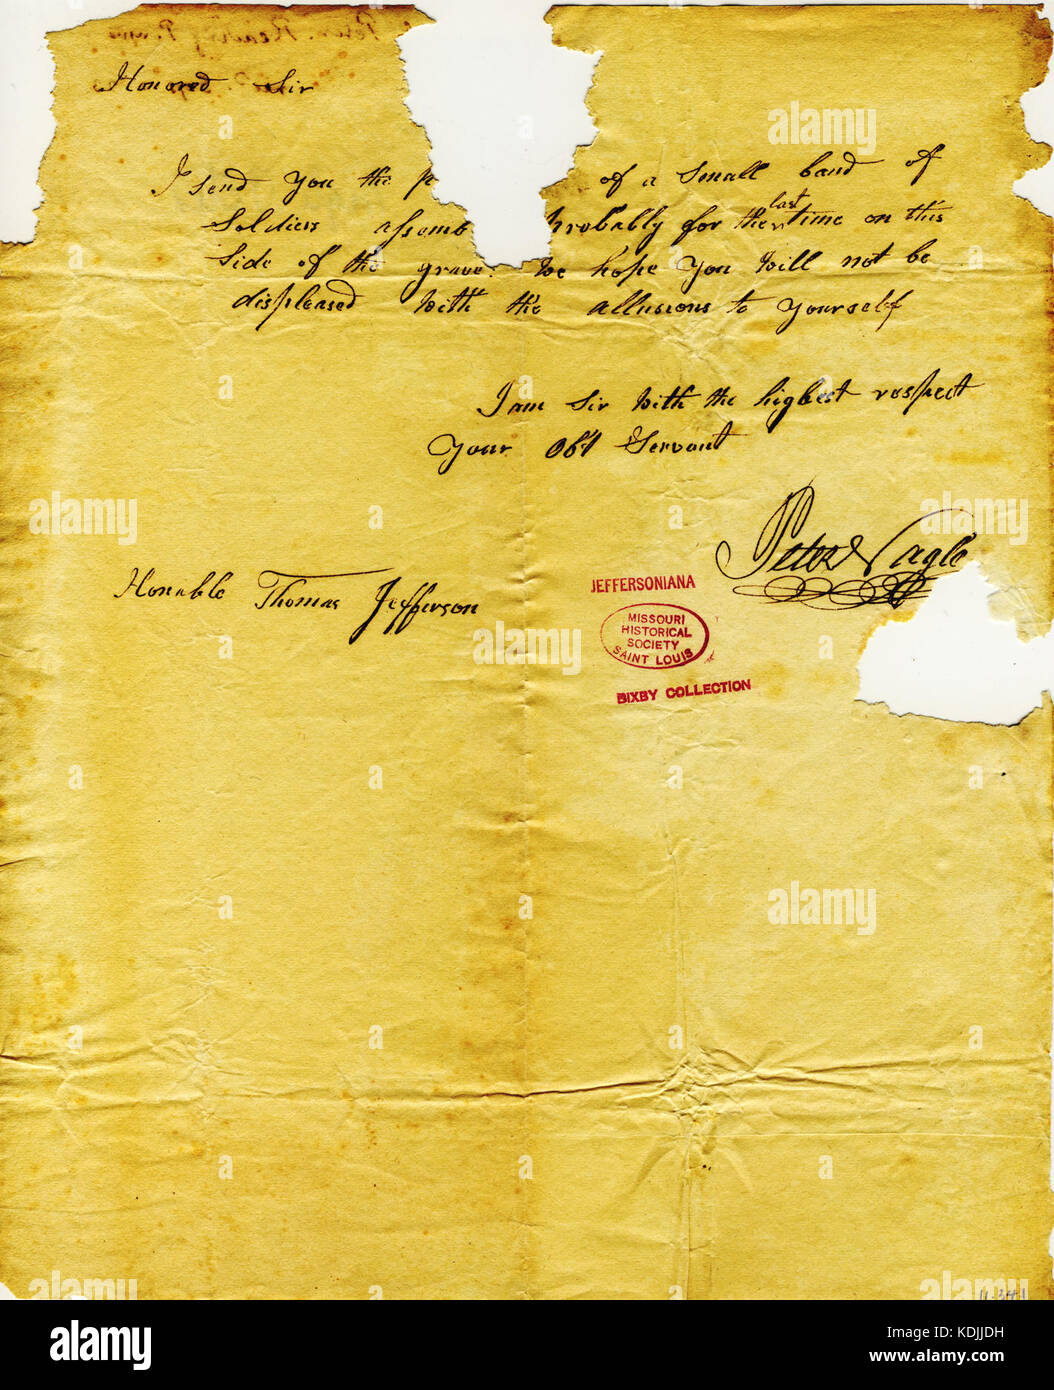 Honored Sir
I send you the p of a small band of
Soldiers assemb robably for the last time on this
Side of the grave. We hope you will not be
displeased with the allusions to yourself
I am Sir with the highest respect
Your Obt Servant
Peter Nagle
Honable Thomas Jefferson
JEFFERSONIANA
MISSOURI
HISTORICAL
SOCIETY
SAINT LOUIS
BIXBY COLLECTION
alamy
Image ID: KDJJDH
www.alamy.com